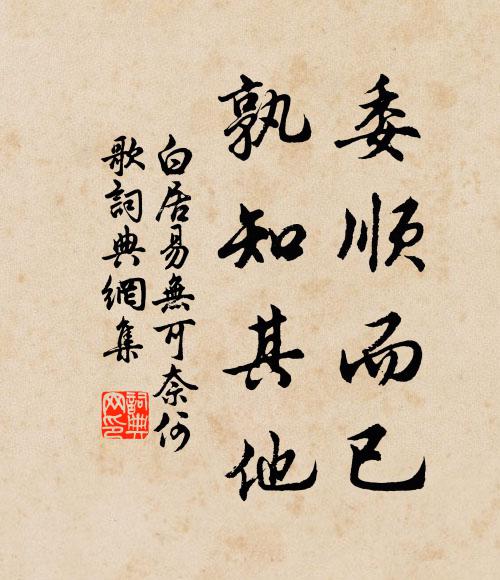 委順而已
孰知其他
白居易無可奈何
歌詞典網集
詞典网印